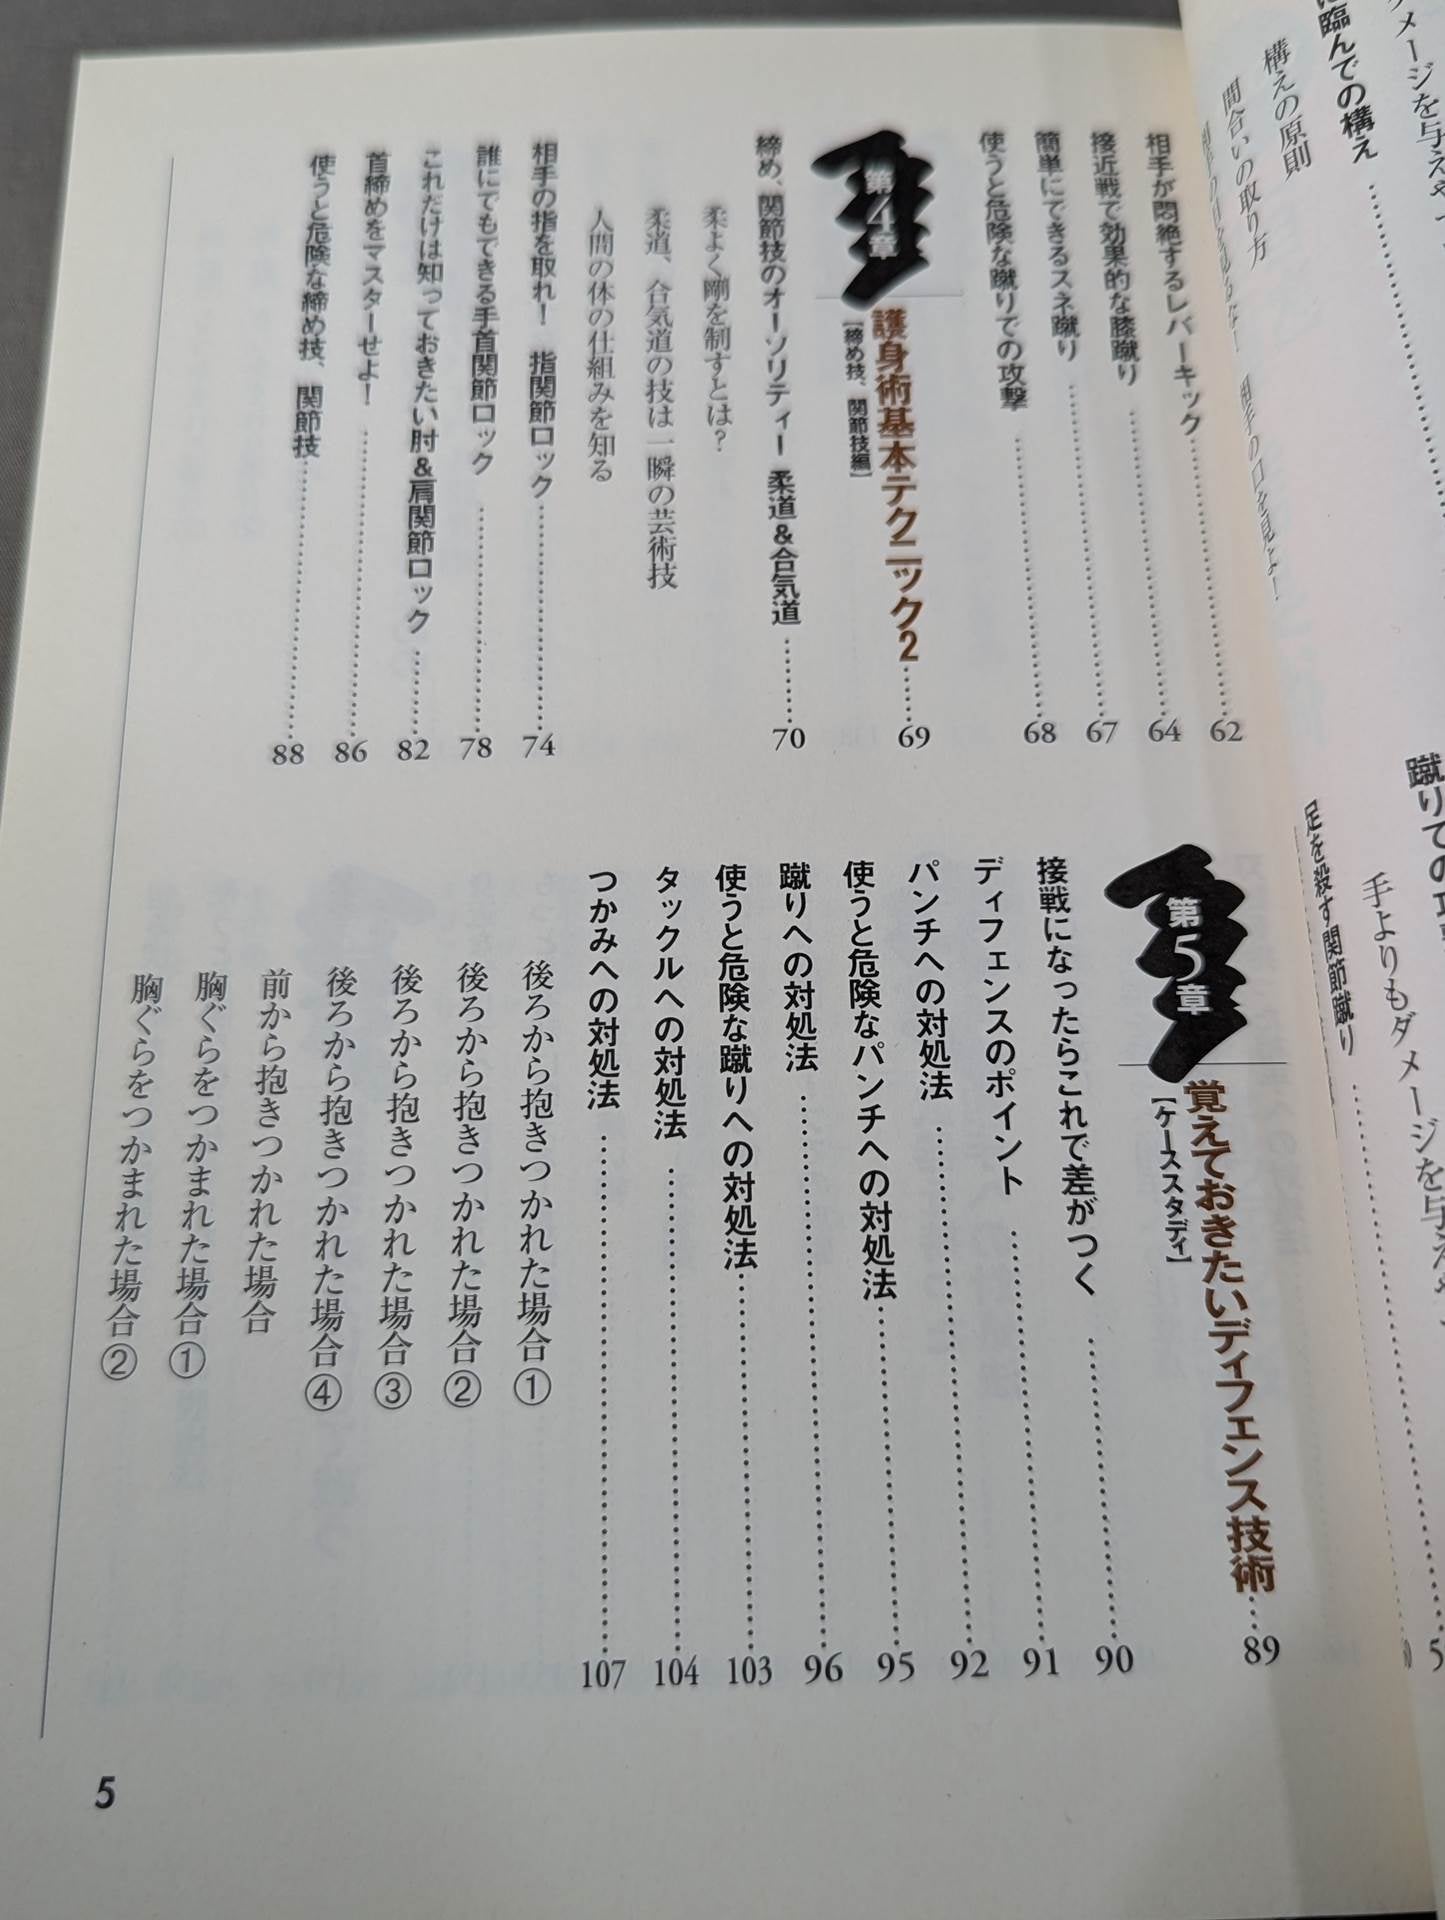 に臨んでの構え
構えの原則
間合いの取り方
足を殺す関節蹴り
相手が悶絶するレバーキック 62
接近戦で効果的な膝蹴り 64
簡単にできるスネ蹴り 67
使うと危険な蹴りでの攻撃 68
第4章 護身術基本テクニック2 69
［締め技、関節技編］
締め、関節技のオーソリティー 柔道&合気道 70
柔よく剛を制すとは？
柔道、合気道の技は一瞬の芸術技
人間の体の仕組みを知る
相手の指を取れ！ 指関節ロック 74
誰にでもできる手首関節ロック 78
これだけは知っておきたい肘&肩関節ロック 82
首締めをマスターせよ！ 86
使うと危険な締め技、関節技 88
第5章 覚えておきたいディフェンス技術 89
［ケーススタディ］
接戦になったらこれで差がつく 90
ディフェンスのポイント 91
パンチへの対処法 92
使うと危険なパンチへの対処法 95
蹴りへの対処法 96
使うと危険な蹴りへの対処法 103
タックルへの対処法 104
つかみへの対処法 107
後ろから抱きつかれた場合①
後ろから抱きつかれた場合②
後ろから抱きつかれた場合③
後ろから抱きつかれた場合④
前から抱きつかれた場合
胸ぐらをつかまれた場合①
胸ぐらをつかまれた場合②
5